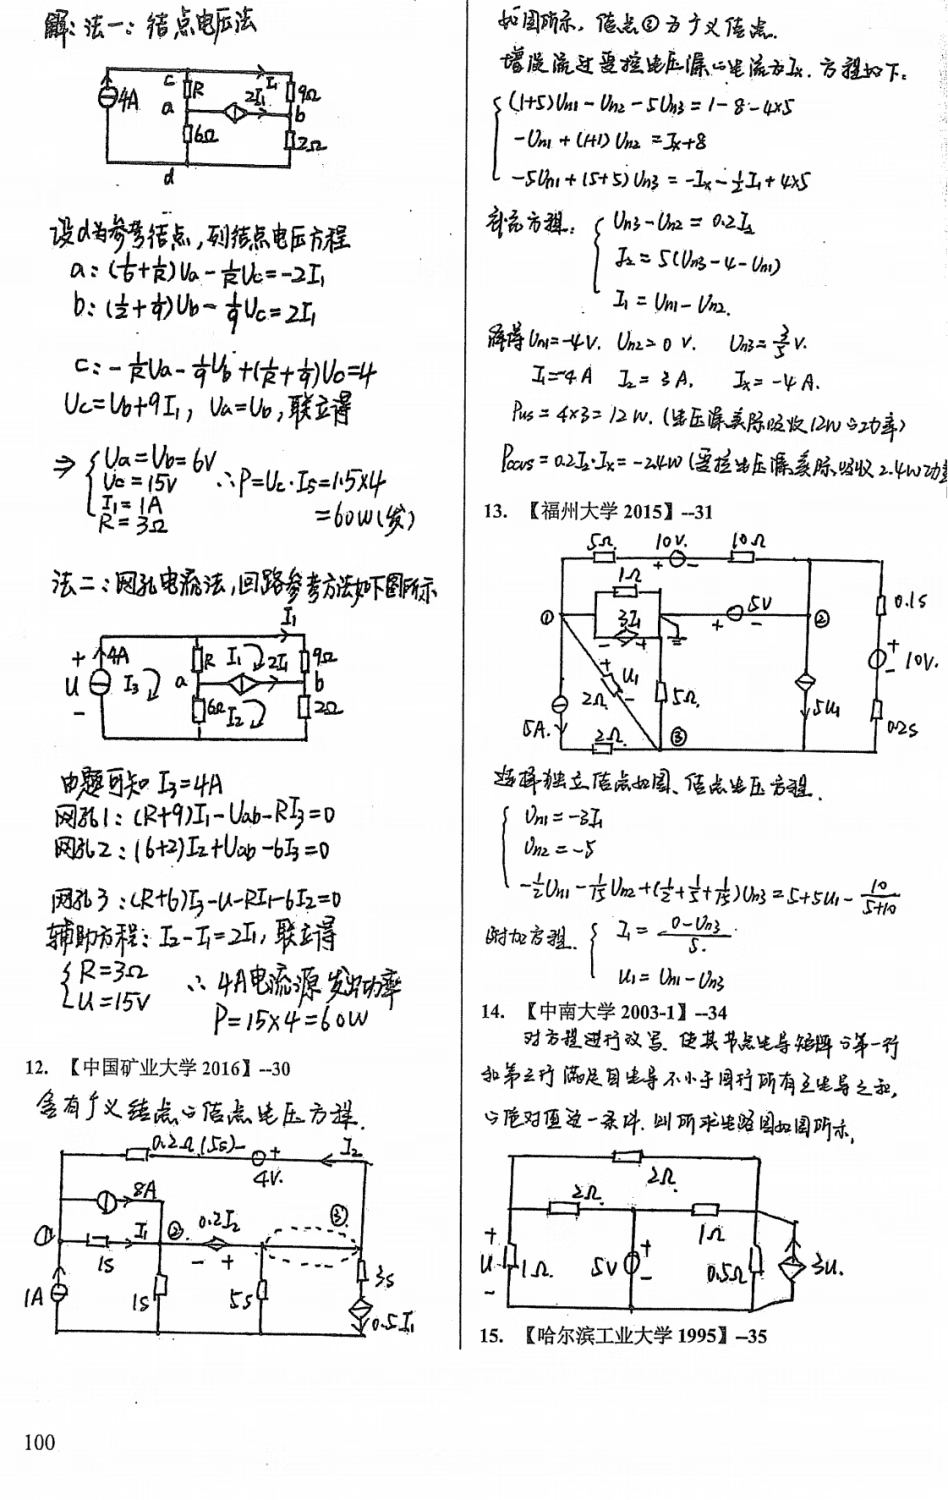 解：法一：结点电压法
4A
c
R
I₁
9Ω
a
2I₁
b
6Ω
2Ω
d
设d为参考结点，列结点电压方程
a：(1/6+1/R)Ua-1/R Uc=-2I₁
b：(1/2+1/9)Ub-1/9 Uc=2I₁
c：-1/R Ua-1/9 Ub+(1/R+1/9)Uc=4
Uc=Ub+9I₁，Ua=Ub，联立得
⇒ { Ua=Ub=6V
Uc=15V
I₁=1A
R=3Ω
∴P=Uc·Is=15×4
=60W(发)
法二：网孔电流法，回路参考方法如下图所示
I₁
+
4A
U
-
I₃
R
I₁
2I₁
9Ω
a
b
6Ω
I₂
2Ω
由题可知 I₃=4A
网孔1：(R+9)I₁-Uab-RI₃=0
网孔2：(6+2)I₂+Uab-6I₃=0
网孔3：(R+6)I₃-U-RI₁-6I₂=0
辅助方程：I₂-I₁=2I₁，联立得
{ R=3Ω
U=15V
∴ 4A电流源发出功率
P=15×4=60W
12. 【中国矿业大学 2016】--30
含有广义结点的结点电压方程.
0.2Ω(5s)
- +
4V.
I₂
8A
①
I₁
②
0.2I₂
- +
③
1S
1A
1S
5S
3S
0.5I₁
100
如图所示，结点③为广义结点.
增设流过受控电压源的电流为Ix. 方程如下：
{ (1+5)Un1-Un2-5Un3=1-8-4×5
-Un1+(1+1)Un2=Ix+8
-5Un1+(5+5)Un3=-Ix-1/2 I₁+4×5
补充方程：{ Un3-Un2=0.2I₂
I₂=5(Un3-4-Un1)
I₁=Un1-Un2.
解得 Un1=-4V. Un2=0V. Un3=3/5 V.
I₁=-4A I₂=3A. Ix=-4A.
Pus=4×3=12W. (电压源实际吸收12W的功率)
Pccvs=0.2I₂·Ix=-2.4W (受控电压源实际吸收2.4W功率
13. 【福州大学 2015】--31
5Ω
10V.
+ -
10Ω
1Ω
①
3I₁
- +
5V
+ -
②
0.1S
+
10V.
-
+
U₁
-
2Ω
5Ω
5U₁
0.2S
5A.
2Ω
③
选择独立结点如图、结点电压方程.
{ Un1=-3I₁
Un2=-5
-1/2 Un1-1/15 Un2+(1/2+1/5+1/15)Un3=5+5U₁-10/(5+10)
附加方程. { I₁=(0-Un3)/5.
U₁=Un1-Un3
14. 【中南大学 2003-1】--34
对方程进行改写. 使其节点电导矩阵的第一行
和第三行满足自电导不小于同行所有互电导之和，
的绝对值这一条件. 则所求电路图如图所示，
2Ω
2Ω
1Ω
+
U
-
1Ω
5V
+
-
0.5Ω
3U.
15. 【哈尔滨工业大学 1995】--35